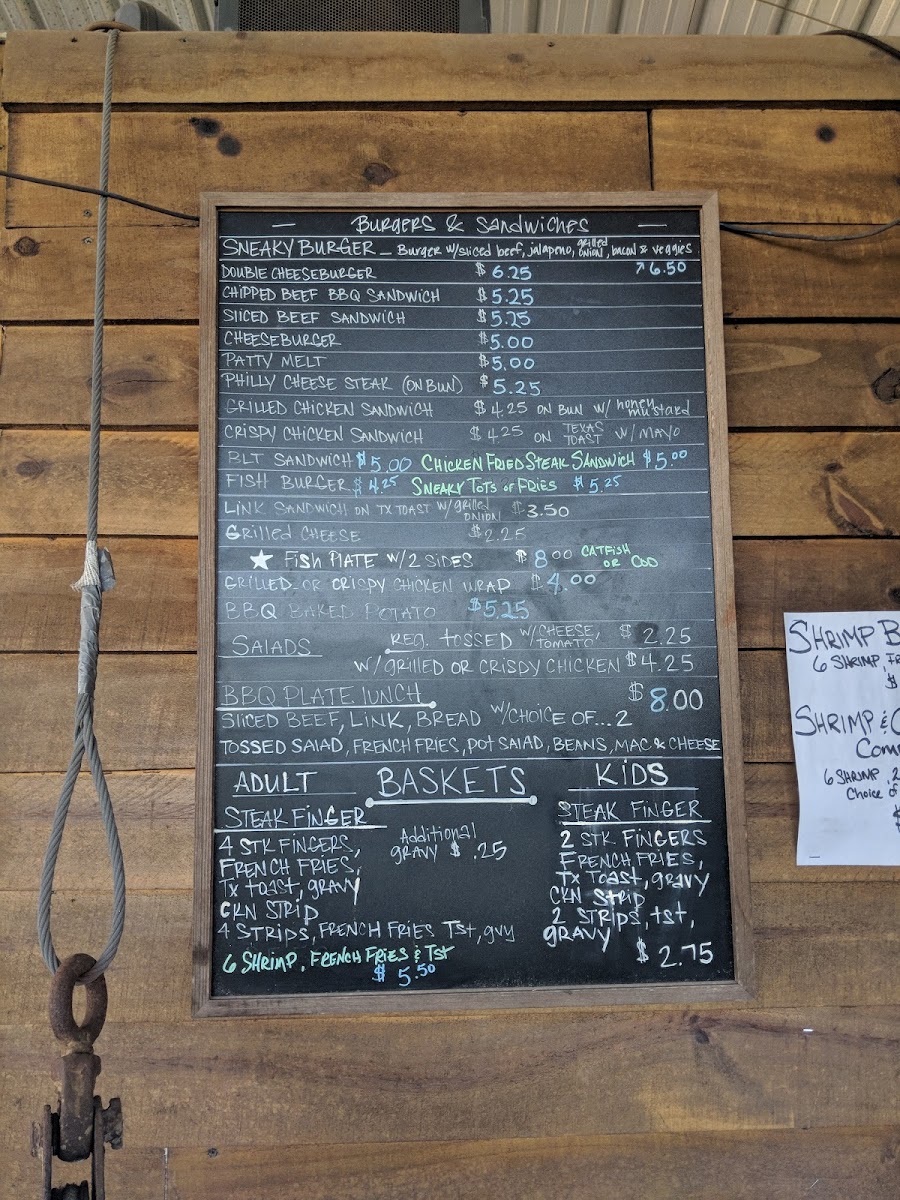 — BURGERS & SANDWICHES —
SNEAKY BURGER – BURGER W/SLICED BEEF, JALAPENO, grilled ONION, BACON & VEGGIES
DOUBLE CHEESEBURGER $6.25 ↗6.50
CHIPPED BEEF BBQ SANDWICH $5.25
SLICED BEEF SANDWICH $5.25
CHEESEBURGER $5.00
PATTY MELT $5.00
PHILLY CHEESE STEAK (ON BUN) $5.25
GRILLED CHICKEN SANDWICH $4.25 ON BUN W/ honey mustard
CRISPY CHICKEN SANDWICH $4.25 ON TEXAS TOAST W/ MAYO
BLT SANDWICH $5.00 CHICKEN FRIED STEAK SANDWICH $5.00
FISH BURGER $4.25 SNEAKY TOTS OF FRIES $5.25
LINK SANDWICH ON TX TOAST W/ grilled ONION $3.50
Grilled CHEESE $2.25
★ FISH PLATE W/2 SIDES $8.00 CATFISH OR COD
GRILLED OR CRISPY CHICKEN WRAP $4.00
BBQ BAKED POTATO $5.25
SALADS REG. TOSSED W/CHEESE, TOMATO $2.25
W/GRILLED OR CRISPY CHICKEN $4.25
BBQ PLATE LUNCH $8.00
SLICED BEEF, LINK, BREAD W/CHOICE OF...2
TOSSED SALAD, FRENCH FRIES, POT SALAD, BEANS, MAC & CHEESE
ADULT BASKETS KIDS
STEAK FINGER
4 STK FINGERS,
FRENCH FRIES,
TX TOAST, gravy
CKN STRIP
4 STRIPS, FRENCH FRIES TST, gvy
6 SHRIMP, FRENCH FRIES & TST
$5.50
Additional
gravy $.25
STEAK FINGER
2 STK FINGERS
FRENCH FRIES,
TX TOAST, gravy
CKN STRIP
2 STRIPS, tst,
gravy
$2.75
SHRIMP B
6 SHRIMP, FR
$
SHRIMP & C
Com
6 SHRIMP, 2
Choice of
$